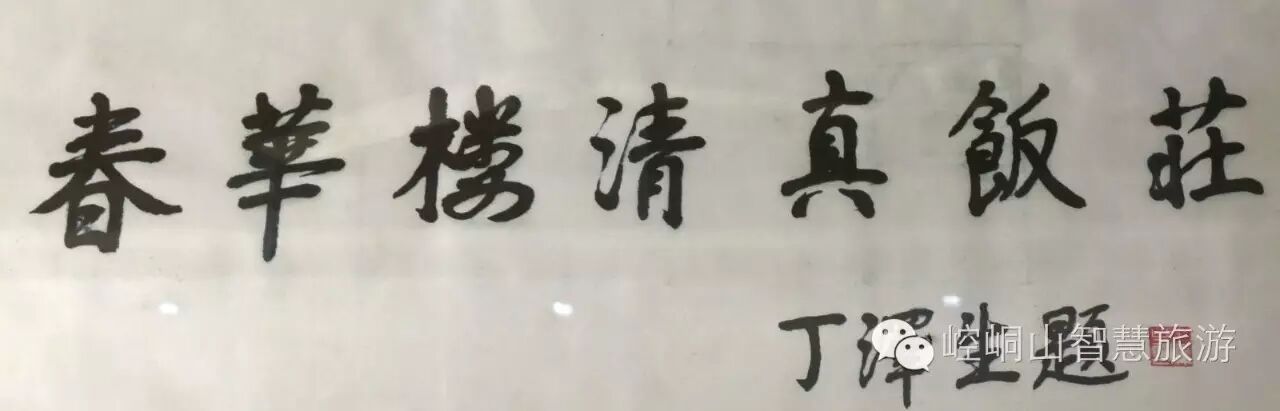 春華楼清真飯莊
丁澤生題
崆峒山智慧旅游